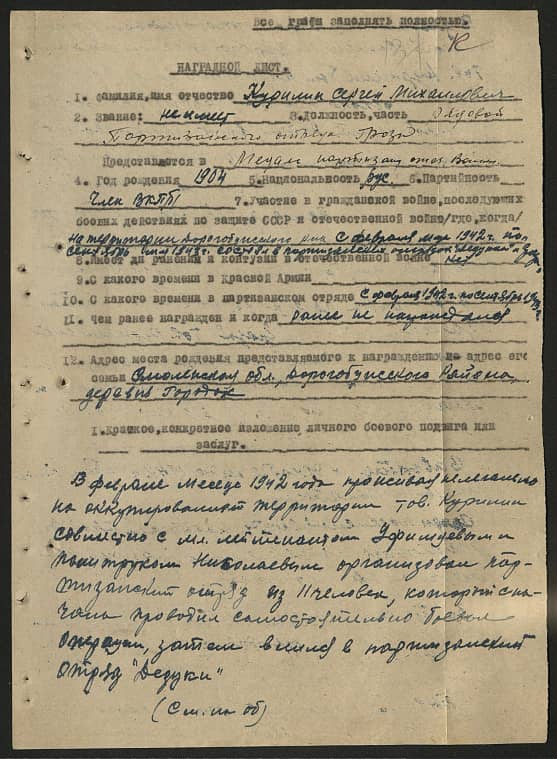 Все графы заполнять полностью.
К
НАГРАДНОЙ ЛИСТ.
1. фамилия, имя отчество Курилин Сергей Михайлович
2. Звание: не имеет 3. Должность, часть Рядовой
Партизанского отряда Гроза
Представляется в Медали партизану отеч. Войны
4. Год рождения 1904 5. Национальность рус. 6. Партийность
Член ВКПб 7. Участие в гражданской войне, последующих
боевых действиях по защите СССР и отечественной войне/где, когда/
на территории Дорогобужского р-на с февраля м-ца 1942 г. по
сентябрь 1943 г. состоял в партизанских отрядах Дедушка и
8. Имеет ли ранения и контузии в отечественной войне нет
9. С какого времени в Красной Армии
10. С какого времени в партизанском отряде с февраля 1942 г. по сентябрь
11. Чем ранее награжден и когда ранее не награждался
12. Адрес места рождения представляемого к награждению и адрес его
семьи Смоленская обл., Дорогобужского Района,
деревня Городок
1. Краткое, конкретное изложение личного боевого подвига или
заслуг.
В феврале месяце 1942 года проживая нелегально
на оккупированной территории тов. Курилин
совместно с мл. лейтенантом и
политруком Николаевым организовал пар-
тизанский отряд из 11 человек, который сна-
чала проводил самостоятельно боевые
операции, затем влился в партизанский
отряд "Дедушки"
(См. на об)